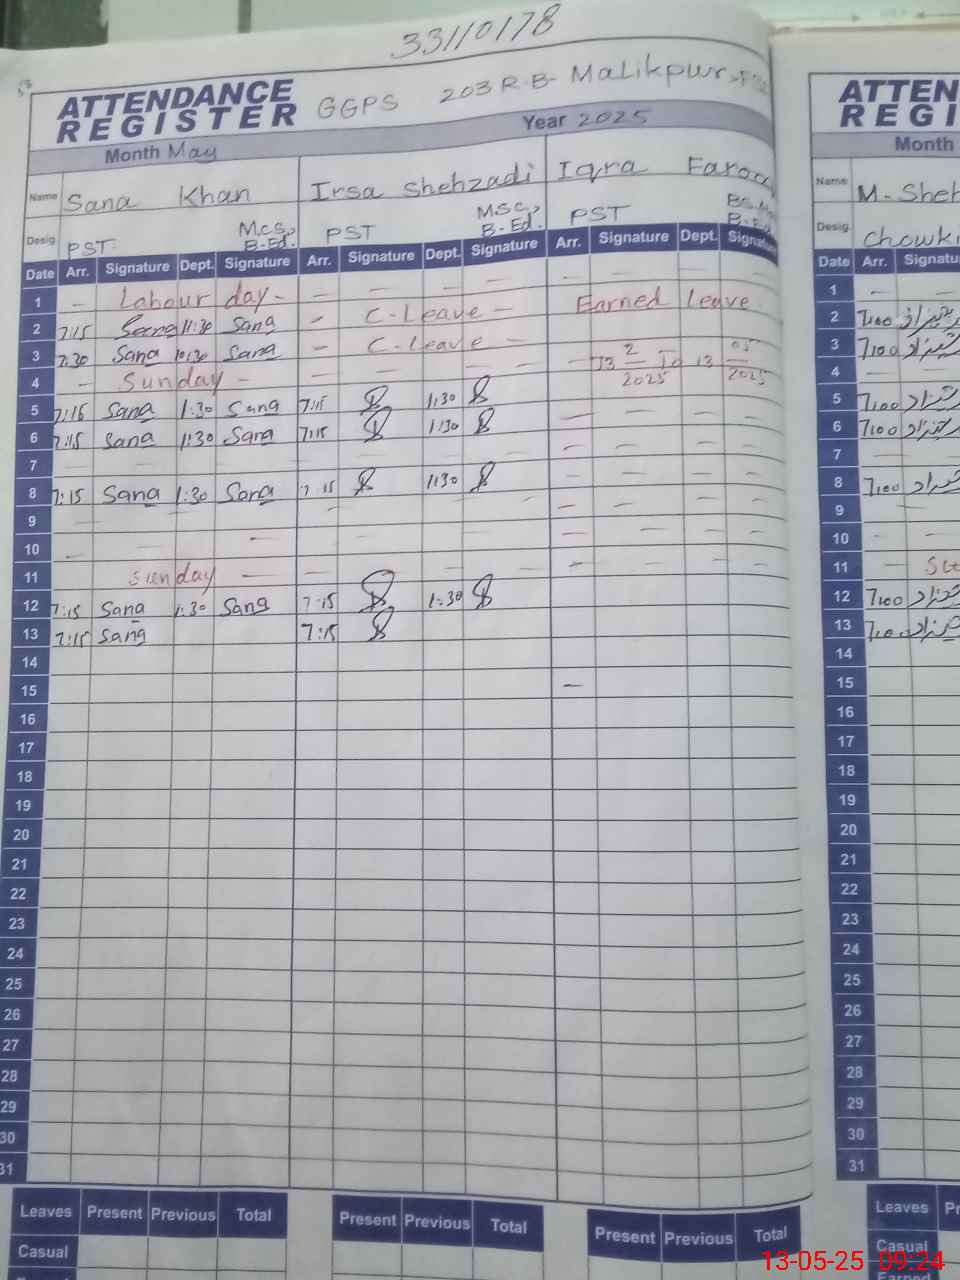 33110178
ATTENDANCE REGISTER GGPS 203 R.B- Malikpur
Month May Year 2025
Name Sana Khan Irsa Shehzadi Iqra Farooq
Desig. PST. M.cs, B-Ed. PST M.SC, B-Ed. PST
Date Arr. Signature Dept. Signature Arr. Signature Dept. Signature Arr. Signature Dept. Signature
1 – Labour day – – – – – – – – –
2 7:15 11:30 Sana – C-Leave – Earned Leave
3 7:30 Sana 10:30 Sana – C-Leave – 13 2 2025 To 13 05 2025
4 – Sunday – – – – –
5 7:15 Sana 1:30 Sana 7:15 1:30
6 7:15 Sana 1:30 Sana 7:15 1:30 – – – –
7 – – – – – – – –
8 7:15 Sana 1:30 Sana 7:15 1:30 – – – –
9 – – – – – –
10 – – – – – – – –
11 Sunday – – – – – – – – –
12 7:15 Sana 1:30 Sana 7:15 1:30
13 7:15 Sana 7:15
14
15 –
16
17
18
19
20
21
22
23
24
25
26
27
28
29
30
31
Leaves Present Previous Total Present Previous Total Present Previous Total
Casual
ATTEN
REGI
Month
Name M-Sheh
Desig. Chowki
Date Arr. Signatu
1 – –
2 7:00
3 7:00
4 – –
5 7:00
6 7:00
7 – –
8 7:00
9 –
10 – –
11 –
12 7:00
13 7:00
14
15
16
17
18
19
20
21
22
23
24
25
26
27
28
29
30
31
Leaves
Casual
Earned
13-05-25 09:24